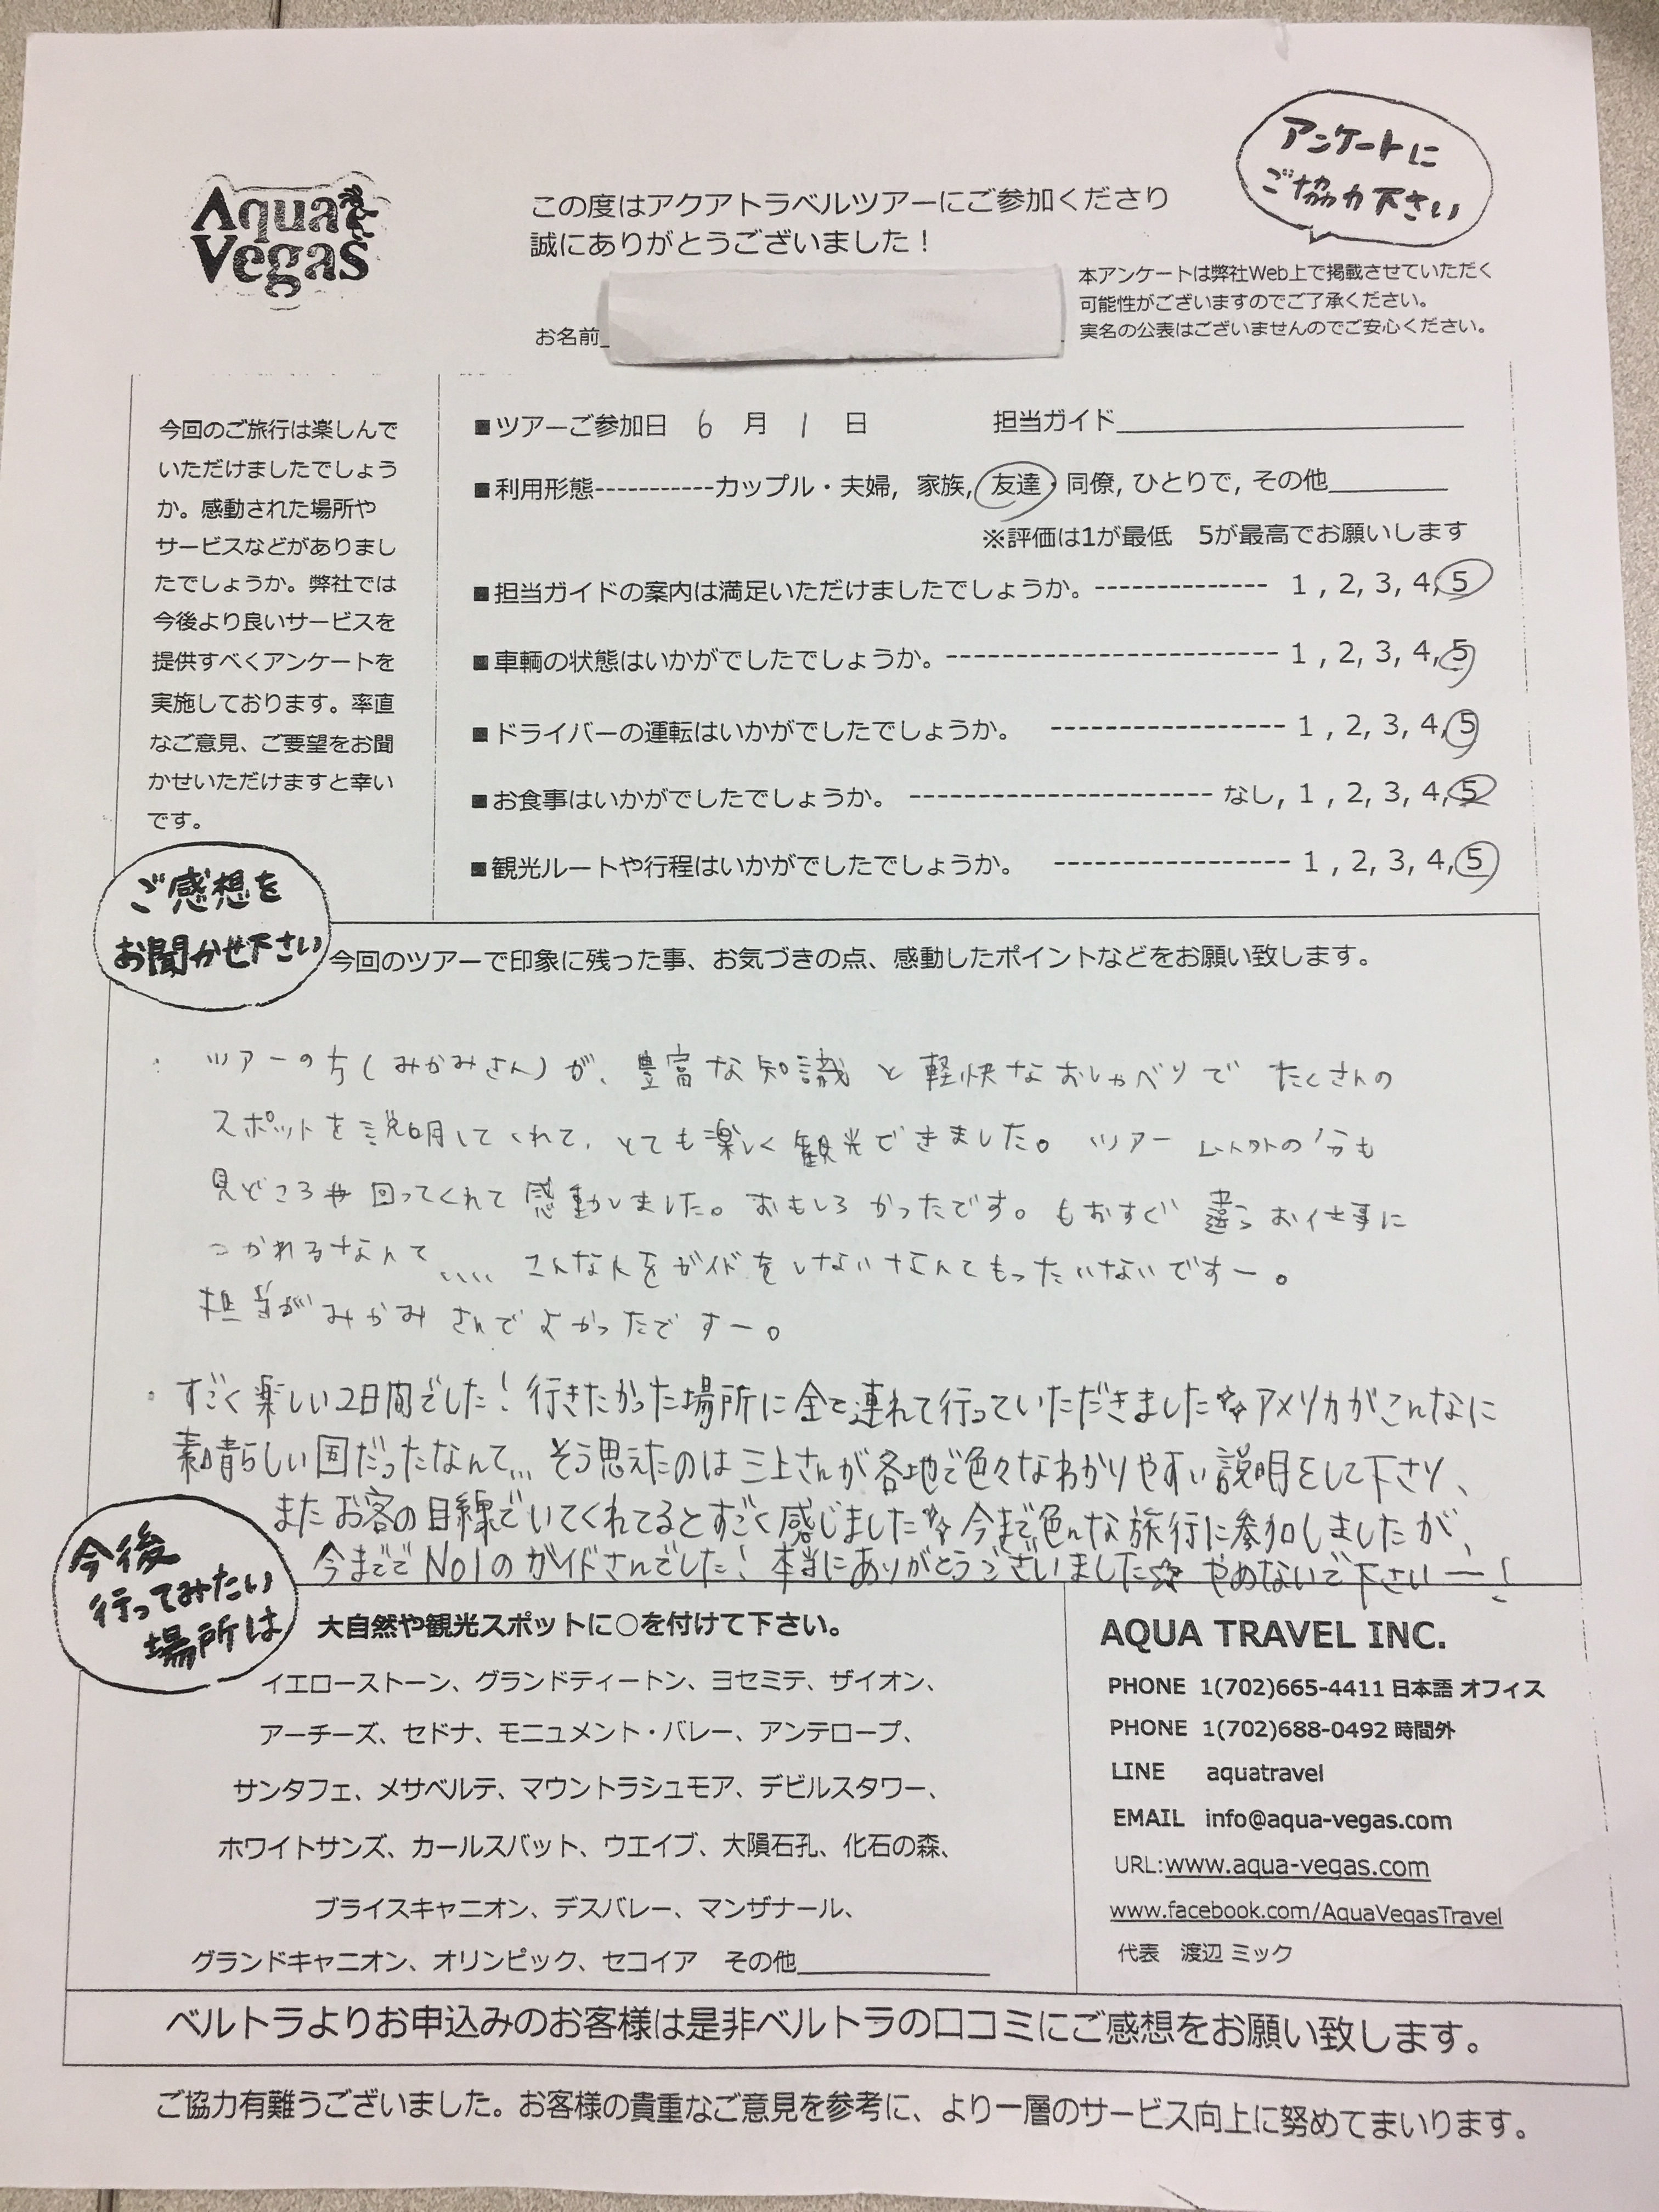 アンケートに
ご協力下さい
Aqua
Vegas
この度はアクアトラベルツアーにご参加くださり
誠にありがとうございました！
本アンケートは弊社Web上で掲載させていただく
可能性がございますのでご了承ください。
実名の公表はございませんのでご安心ください。
お名前
今回のご旅行は楽しんで
いただけましたでしょう
か。感動された場所や
サービスなどがありまし
たでしょうか。弊社では
今後より良いサービスを
提供すべくアンケートを
実施しております。率直
なご意見、ご要望をお聞
かせいただけますと幸い
です。
■ツアーご参加日 6 月 1 日 担当ガイド
■利用形態-----------カップル・夫婦, 家族, 友達・同僚, ひとりで, その他
※評価は1が最低 5が最高でお願いします
■担当ガイドの案内は満足いただけましたでしょうか。-------------- 1 , 2, 3, 4, 5
■車輌の状態はいかがでしたでしょうか。------------------------ 1 , 2, 3, 4, 5
■ドライバーの運転はいかがでしたでしょうか。 ----------------- 1 , 2, 3, 4, 5
■お食事はいかがでしたでしょうか。 ---------------------- なし, 1 , 2, 3, 4, 5
■観光ルートや行程はいかがでしたでしょうか。 ----------------- 1 , 2, 3, 4, 5
ご感想を
お聞かせ下さい
今回のツアーで印象に残った事、お気づきの点、感動したポイントなどをお願い致します。
・ ツアーの方(みかみさん)が、豊富な知識と軽快なおしゃべりで たくさんの
スポットを説明してくれて、とても楽しく観光できました。 ツアー以外の分も
見どころ 回ってくれて感動しました。おもしろかったです。もおすぐ 違うお仕事に
つかれるなんて.... こんな人をガイドをしないなんてもったいないですー。
担当がみかみさんでよかったですー。
・ すごく楽しい2日間でした！行きたかった場所に全て連れて行っていただきました☆アメリカがこんなに
素晴らしい国だったなんて... そう思えたのは三上さんが各地で色々なわかりやすい説明をして下さり、
またお客の目線でいてくれてるとすごく感じました☆ 今まで色んな旅行に参加しましたが、
今まででNo1のガイドさんでした！本当にありがとうございました☆ やめないで下さいー！
今後
行ってみたい
場所は
大自然や観光スポットに○を付けて下さい。
イエローストーン、グランドティートン、ヨセミテ、ザイオン、
アーチーズ、セドナ、モニュメント・バレー、アンテロープ、
サンタフェ、メサベルテ、マウントラシュモア、デビルスタワー、
ホワイトサンズ、カールスバット、ウエイブ、大隕石孔、化石の森、
ブライスキャニオン、デスバレー、マンザナール、
グランドキャニオン、オリンピック、セコイア その他
AQUA TRAVEL INC.
PHONE 1(702)665-4411 日本語 オフィス
PHONE 1(702)688-0492 時間外
LINE aquatravel
EMAIL info@aqua-vegas.com
URL:www.aqua-vegas.com
www.facebook.com/AquaVegasTravel
代表 渡辺 ミック
ベルトラよりお申込みのお客様は是非ベルトラの口コミにご感想をお願い致します。
ご協力有難うございました。お客様の貴重なご意見を参考に、より一層のサービス向上に努めてまいります。